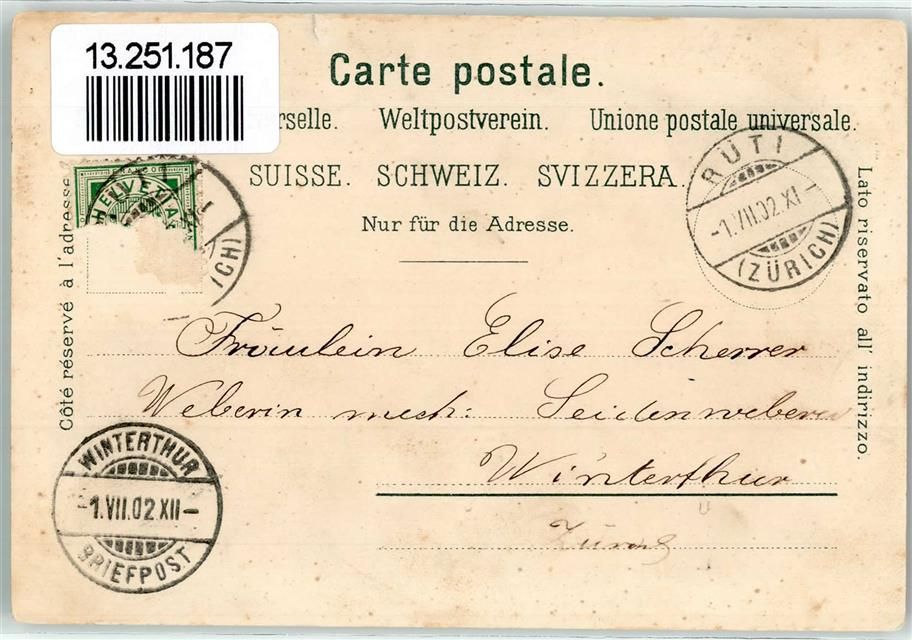 13.251.187
Carte postale.
Weltpostverein. Unione postale universale.
SUISSE. SCHWEIZ. SVIZZERA.
Nur für die Adresse.
Côté réservé à l'adresse
Lato riservato all' indirizzo.
HELVETIA
ICH)
RÜTI
-1.VII.02.XI-
(ZÜRICH)
Fräulein Elise Scherrer
Weberin mech: Seidenweberei
Winterthur
WINTERTHUR
-1.VII.02.XII-
BRIEFPOST